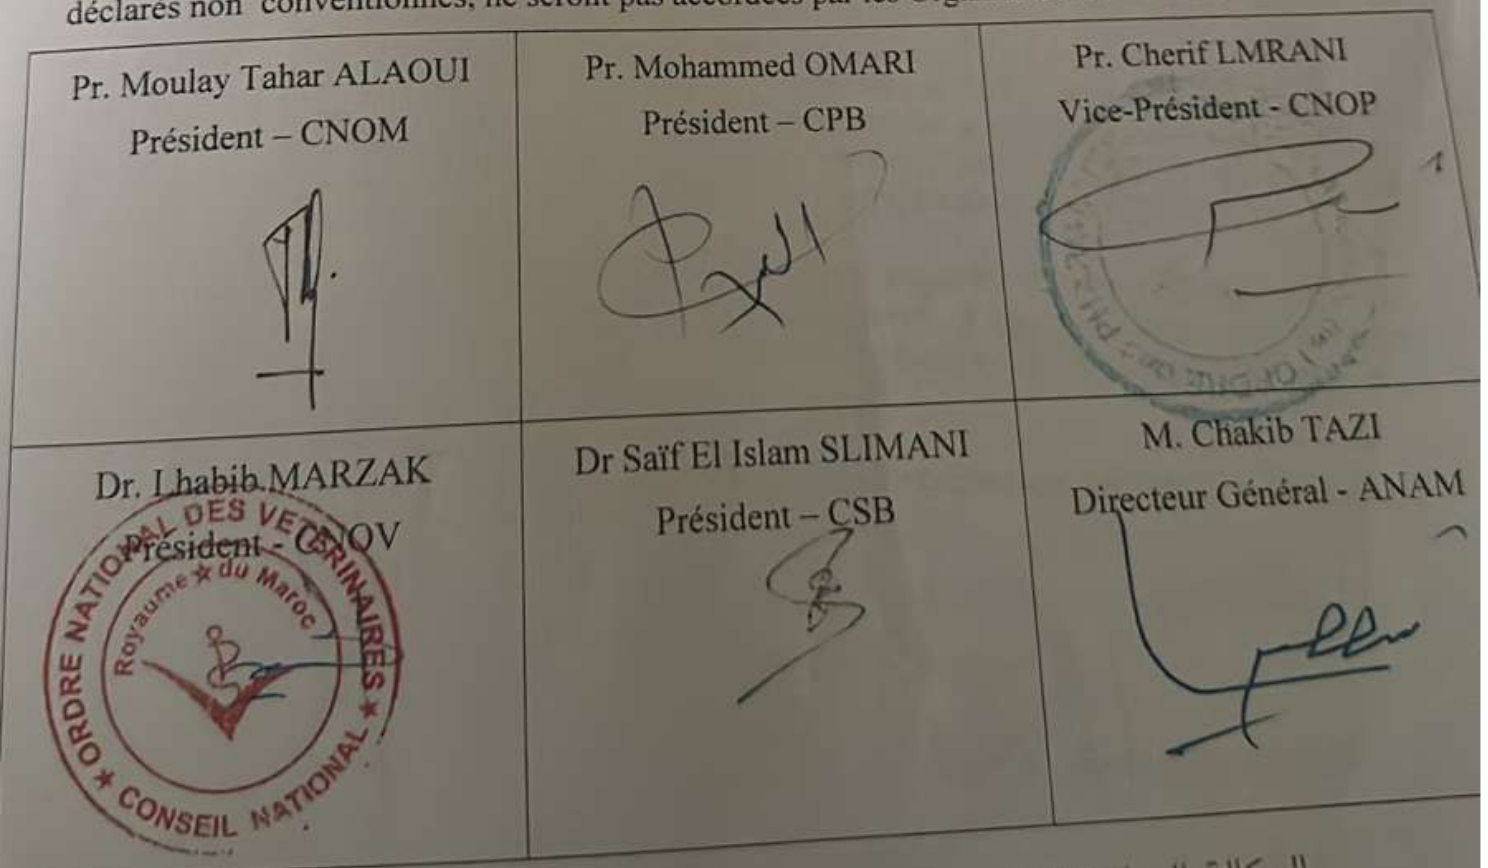 déclarés non conventionnés, ne seront pas accordées par les
Pr. Moulay Tahar ALAOUI
Président – CNOM
Pr. Mohammed OMARI
Président – CPB
Pr. Cherif LMRANI
Vice-Président - CNOP
Dr. Lhabib MARZAK
Président - CNOV
ORDRE NATIONAL DES VETERINAIRES
Royaume du Maroc
CONSEIL NATIONAL
Dr Saïf El Islam SLIMANI
Président – CSB
M. Chakib TAZI
Directeur Général - ANAM